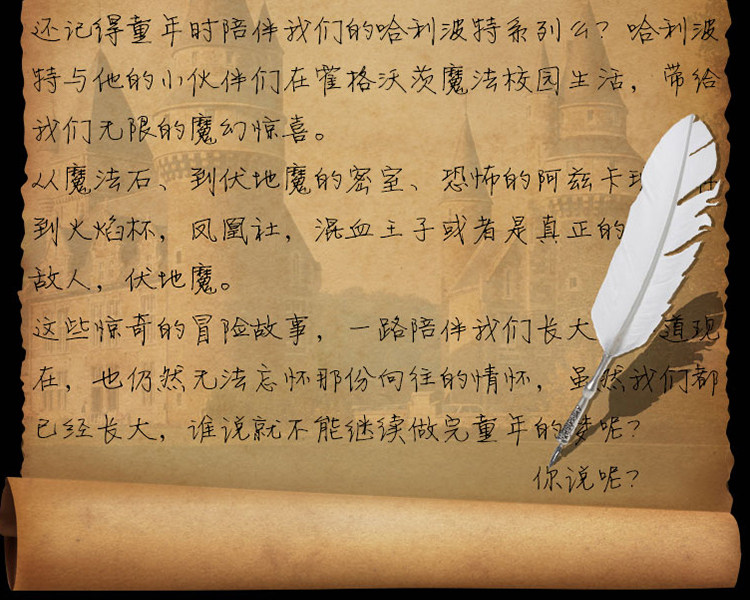 还记得童年时陪伴我们的哈利波特系列么？哈利波
特与他的小伙伴们在霍格沃茨魔法校园生活，带给
我们无限的魔幻惊喜。
从魔法石、到伏地魔的密室、恐怖的阿兹卡
到火焰杯，凤凰社，混血王子或者是真正的
敌人，伏地魔。
这些惊奇的冒险故事，一路陪伴我们长大 道现
在，也仍然无法忘怀那份向往的情怀，虽然我们都
已经长大，谁说就不能继续做完童年的梦呢？
你说呢？